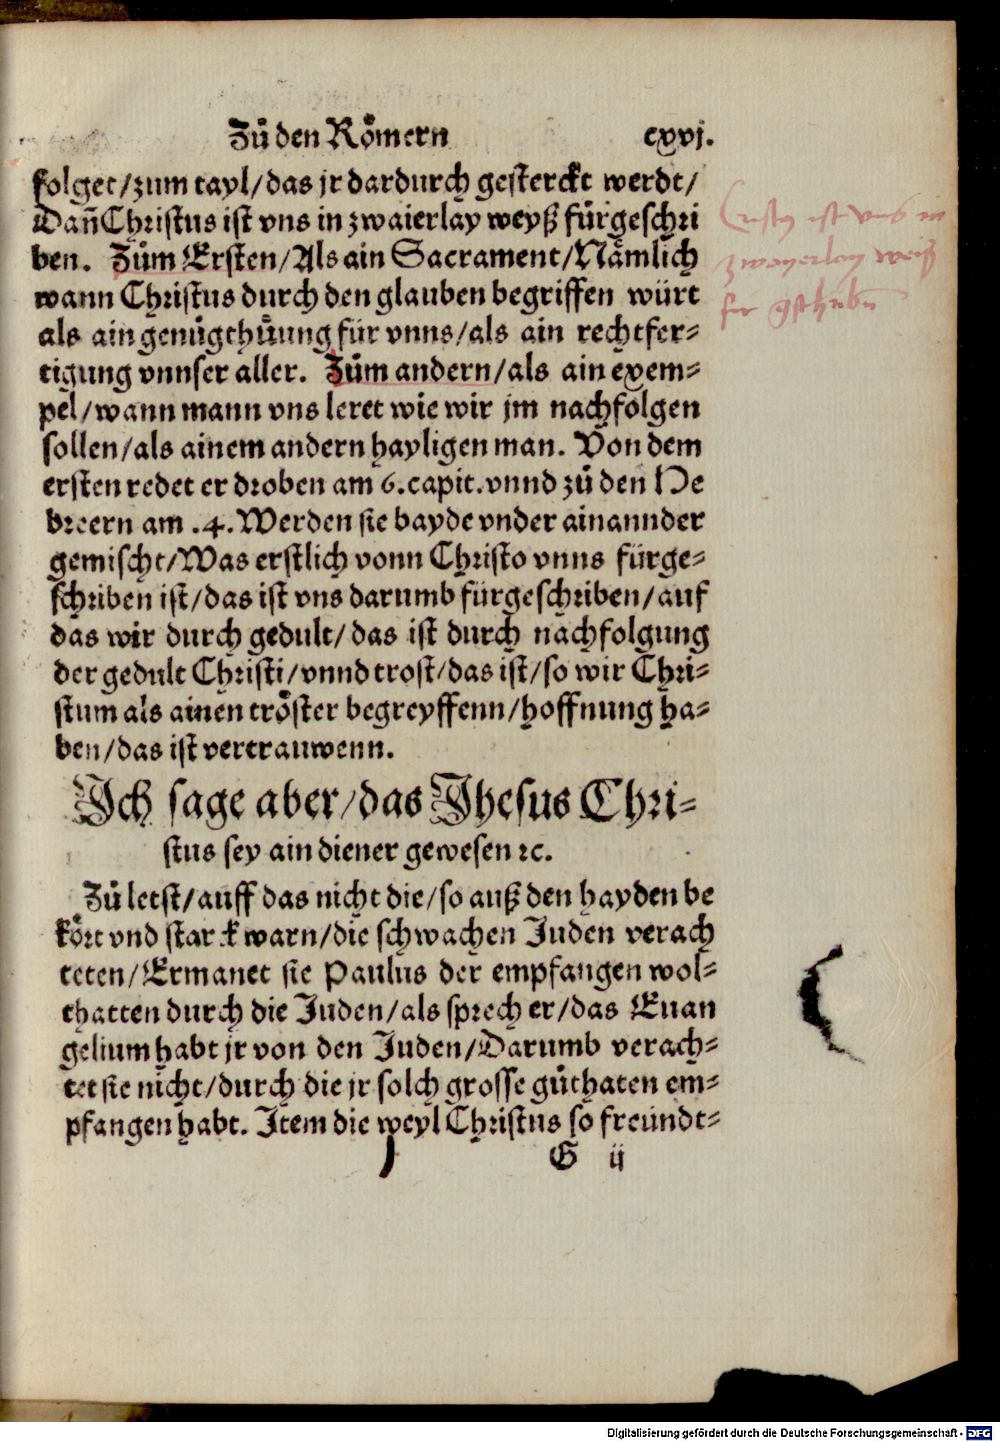 Zů den Römern cxvj.
folget/zum tayl/das jr dardurch gesterckt werdt/
Dañ Christus ist vns in zwaierlay weyß fürgeschri
ben. Zům Ersten/Als ain Sacrament/Nämlich
wann Christus durch den glauben begriffen würt
als ain genůgthůung für vnns/als ain rechtfer⸗
tigung vnnser aller. Zům andern/als ain exem⸗
pel/wann mann vns leret wie wir jm nachfolgen
sollen/als ainem andern hayligen man. Von dem
ersten redet er droben am 6.capit.vnnd zů den He
breern am .4. Werden sie bayde vnder ainannder
gemischt/Was erstlich vonn Christo vnns fürge⸗
schriben ist/das ist vns darumb fürgeschriben/auf
das wir durch gedult/das ist durch nachfolgung
der gedult Christi/vnnd trost/das ist/so wir Chri⸗
stum als ainen tröster begreyffenn/hoffnung ha⸗
ben/das ist vertrauwenn.
Ich sage aber/das Jhesus Chri⸗
stus sey ain diener gewesen ꝛc.
Zů letst/auff das nicht die/so auß den hayden be
kört vnd starck warn/die schwachen Juden verach
teten/Ermanet sie Paulus der empfangen wol⸗
thatten durch die Juden/als sprech er/das Euan
gelium habt jr von den Juden/Darumb verach⸗
tet sie nicht/durch die jr solch grosse gůthaten em⸗
pfangen habt. Item die weyl Christus so freündt⸗
G ij
ist vns in
zwayerlay weiß
Digitalisierung gefördert durch die Deutsche Forschungsgemeinschaft - DFG